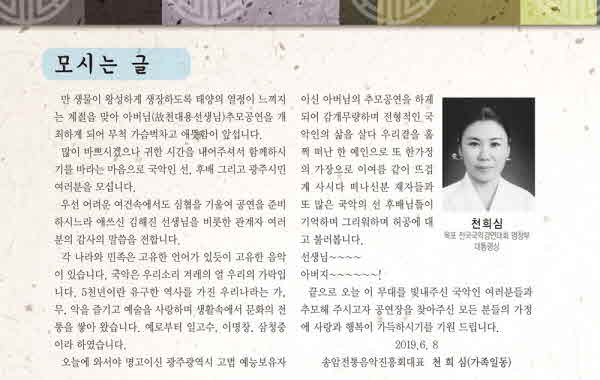 모시는 글
만 생물이 왕성하게 생장하도록 태양의 열정이 느껴지
는 계절을 맞아 아버님(故천대용선생님)추모공연을 개
최하게 되어 무척 가슴벅차고 애틋함이 앞섭니다.
많이 바쁘시겠으나 귀한 시간을 내어주셔서 함께하시
기를 바라는 마음으로 국악인 선, 후배 그리고 광주시민
여러분을 모십니다.
우선 어려운 여건속에서도 심혈을 기울여 공연을 준비
하시느라 애쓰신 김해진 선생님을 비롯한 관계자 여러
분의 감사의 말씀을 전합니다.
각 나라와 민족은 고유한 언어가 있듯이 고유한 음악
이 있습니다. 국악은 우리소리 겨레의 얼 우리의 가락입
니다. 5천년이란 유구한 역사를 가진 우리나라는 가,
무, 악을 즐기고 예술을 사랑하며 생활속에서 문화의 전
통을 쌓아 왔습니다. 예로부터 일고수, 이명창, 삼청중
이라 하였습니다.
오늘에 와서야 명고이신 광주광역시 고법 예능보유자
이신 아버님의 추모공연을 하게
되어 감개무량하며 전형적인 국
악인의 삶을 살다 우리곁을 훌
쩍 떠난 한 예인으로 또 한가정
의 가장으로 이여름 같이 뜨겁
게 사시다 떠나신분 제자들과
또 많은 국악의 선 후배님들이
기억하며 그리워하며 허공에 대
고 불러봅니다.
선생님~~~~
아버지~~~~~~!
끝으로 오늘 이 무대를 빛내주신 국악인 여러분들과
추모해 주시고자 공연장을 찾아주신 모든 분들의 가정
에 사랑과 행복이 가득하시기를 기원 드립니다.
2019.6. 8
송암전통음악진흥회대표 천 희 심(가족일동)
천희심
목포 전국국악경연대회 명창부
대통령상